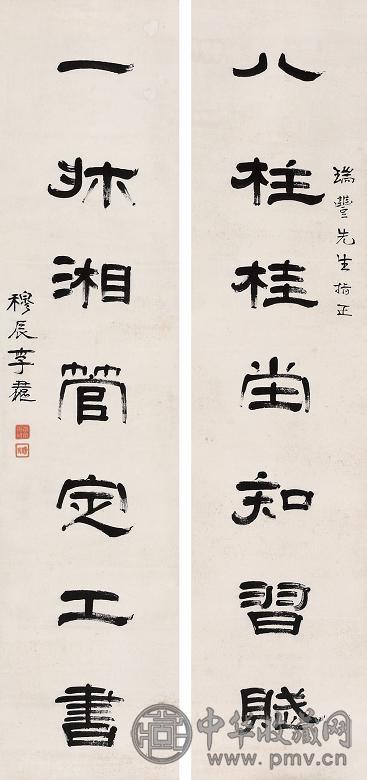 瑞豐先生指正
八柱桂坣知習賦
一牀湘管定工書
穆辰李
中华收藏网
www.pmv.cn